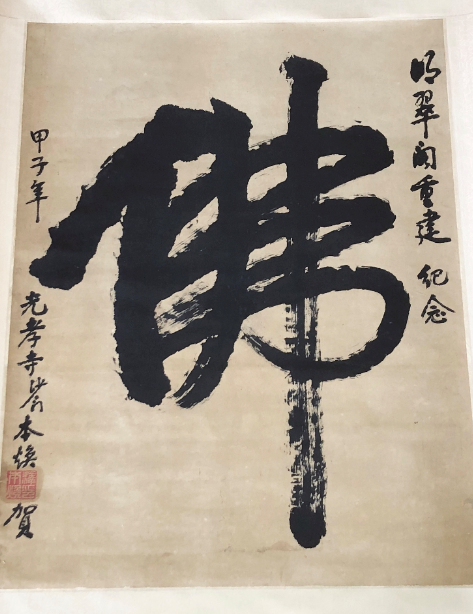 明翠阁重建 纪念
佛
甲子年 光孝寺沙门本焕 贺